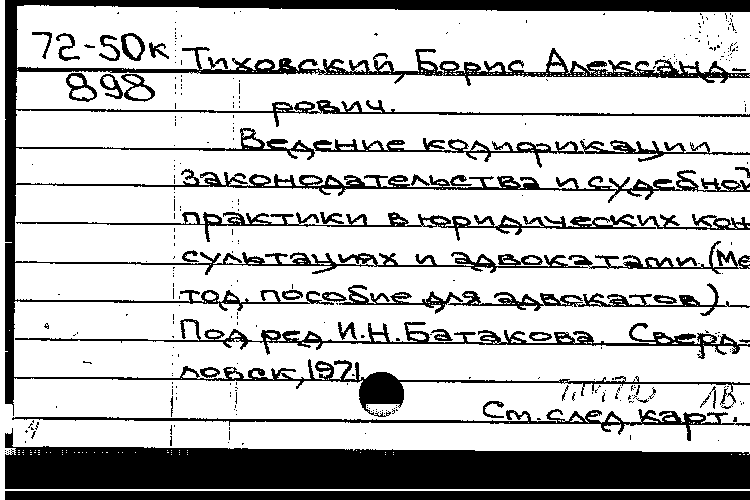 72-50к Тиховский, Борис Александ-
898
рович.
Ведение кодификации
законодательства и судебной
практики в юридических кон-
сультациях и адвокатами. (Ме
тод. пособие для адвокатов).
Под ред. И.Н. Батакова. Сверд-
ловск, 1971.
7.IV.72 1В
См. след. карт.